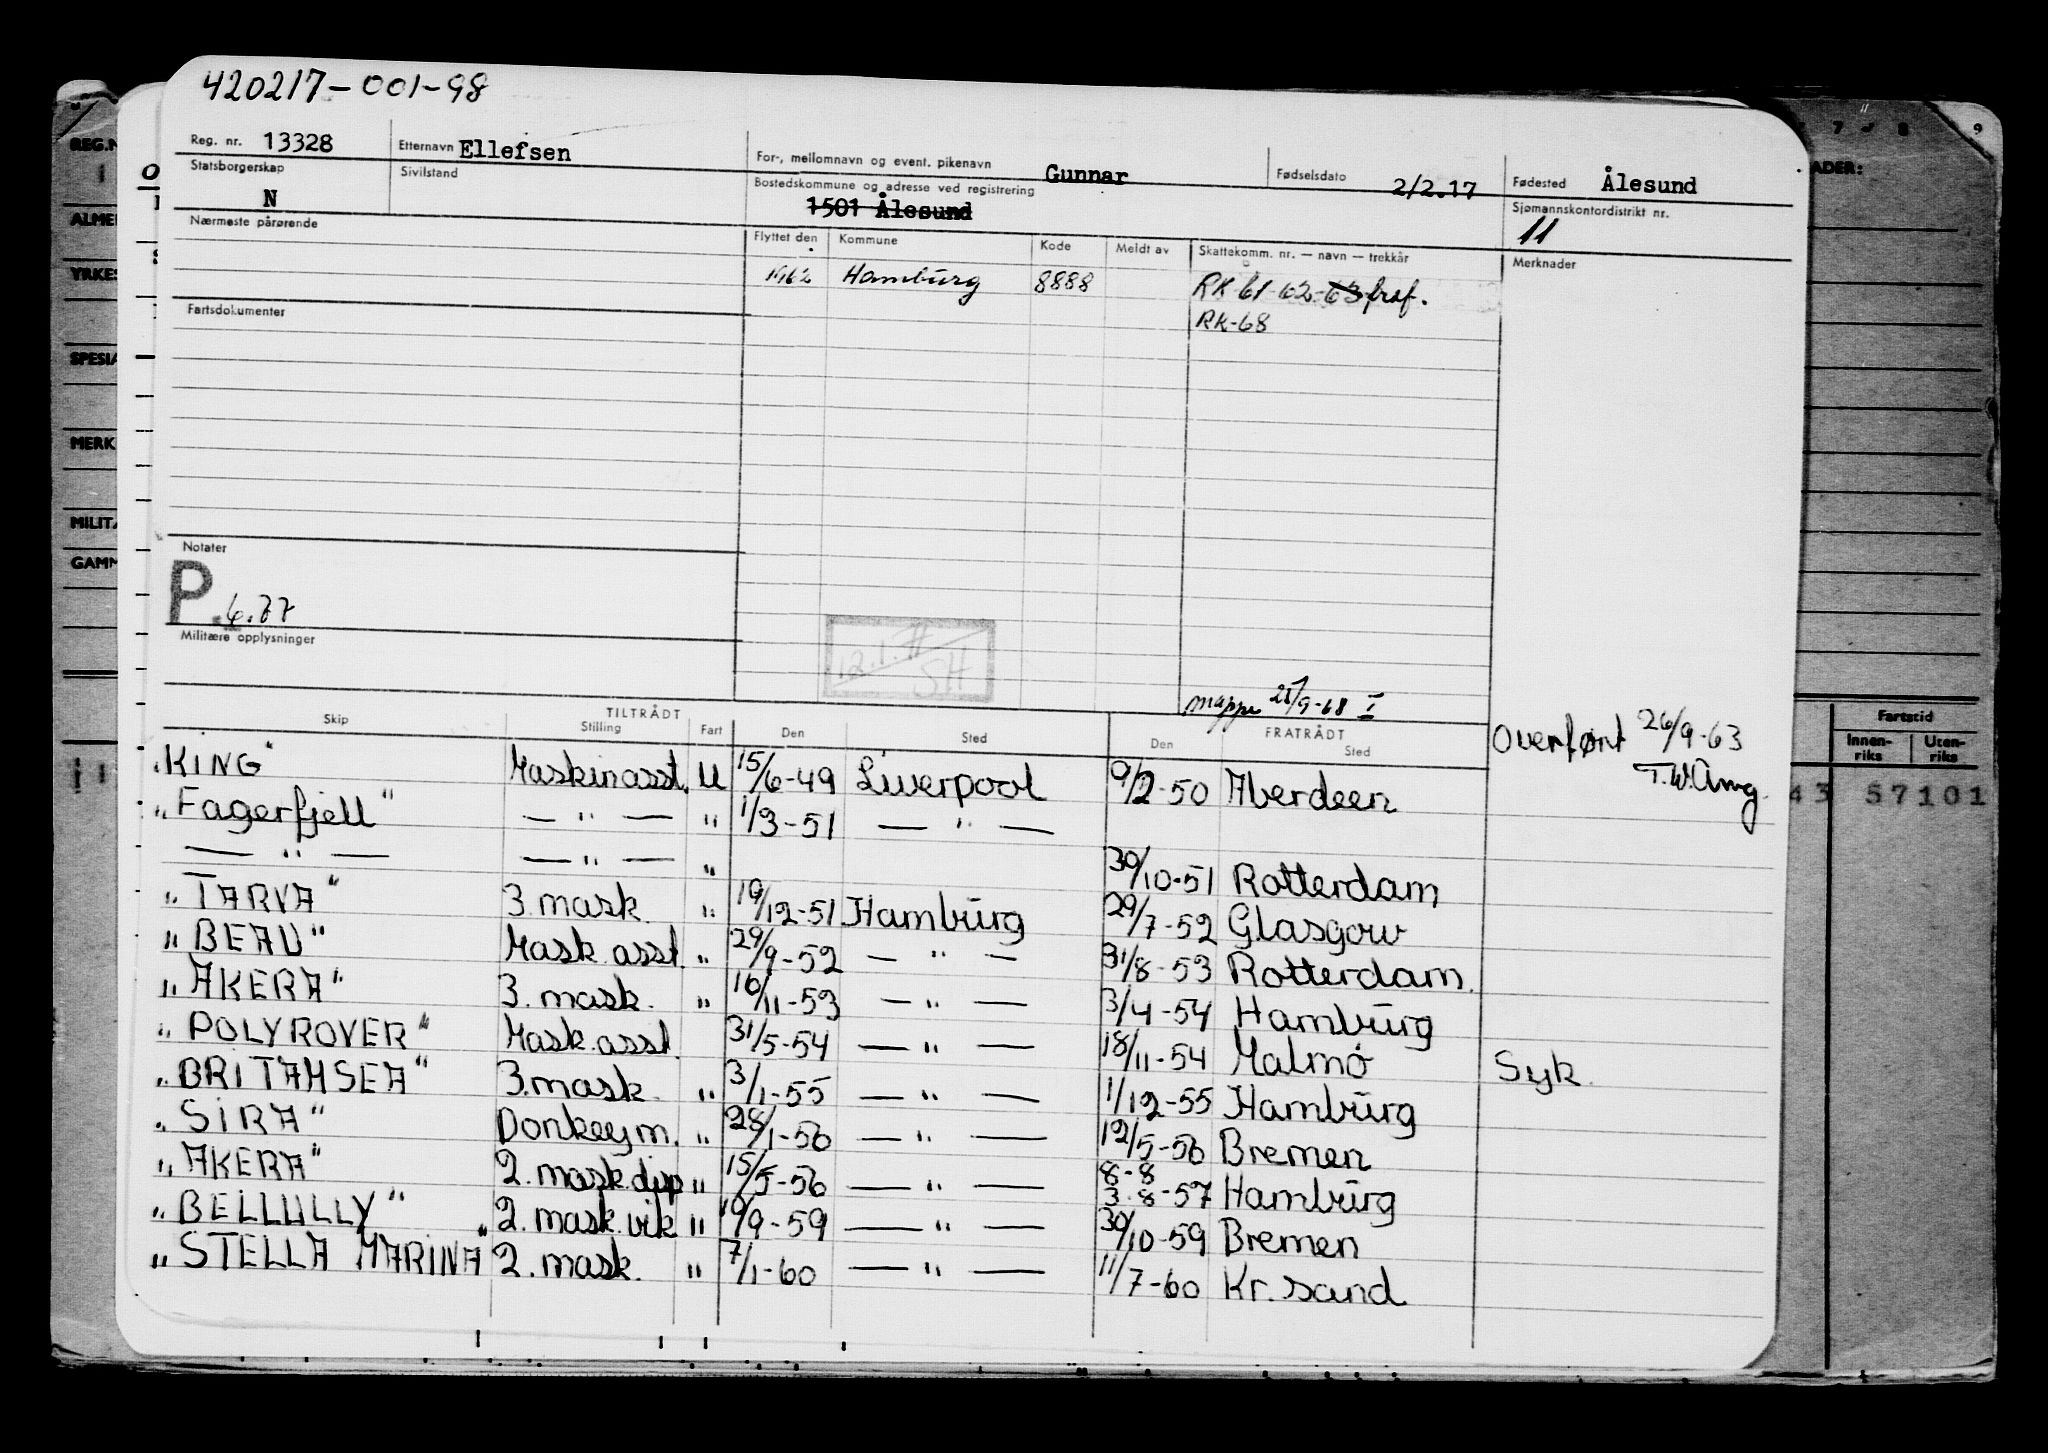 420217-001-98
Reg. nr. 13328 Etternavn Ellefsen For-, mellomnavn og event. pikenavn Gunnar Fødselsdato 2/2.17 Fødested Ålesund
Statsborgerskap N Sivilstand Bostedskommune og adresse ved registrering 1501 Ålesund Sjømannskontordistrikt nr. 11
Nærmeste pårørende Flyttet den Kommune Kode Meldt av Skattekomm. nr. — navn — trekkår Merknader
1962 Hamburg 8888 RK 61-62-63 fraf.
RK-68
Fartsdokumenter
Notater
P. 6.77
Militære opplysninger
12.1.77
SH
mappe 25/9-68 I
TILTRÅDT FRATRÅDT
Skip Stilling Fart Den Sted Den Sted
Overført 26/9-63
"KING" Maskinasst. U 15/6-49 Liverpool 9/2-50 Aberdeen
"Fagerfjell" — " — " 1/3-51 — " —
— " — — " — " 30/10-51 Rotterdam
"TARVA" 3. mask. " 19/12-51 Hamburg 29/7-52 Glasgow
"BEAU" Mask. asst. " 29/9-52 — " — 31/8-53 Rotterdam.
"AKERA" 3. mask. " 10/11-53 — " — 3/4-54 Hamburg
"POLYROVER" Mask. asst. 31/5-54 — " — 18/11-54 Malmö Syk.
"BRITAMSEA" 3. mask. " 3/1-55 — " — 1/12-55 Hamburg
"SIRA" Donkeym. " 28/1-56 — " — 12/5-56 Bremen
"AKERA" 2. mask. disp " 15/5-56 — " — 8-8 3.8-57 Hamburg
"BELLULLY" 2. mask. vik " 19/9-59 — " — 30/10-59 Bremen
"STELLA MARINA" 2. mask. " 7/1-60 — " — 11/7-60 Kr. sand
REG.N
ALME
YRKES
SPESIA
MERK
MILITÆ
GAMM
7 - 8 9
ADER:
Fartstid
Innen-riks Uten-riks
43 57101